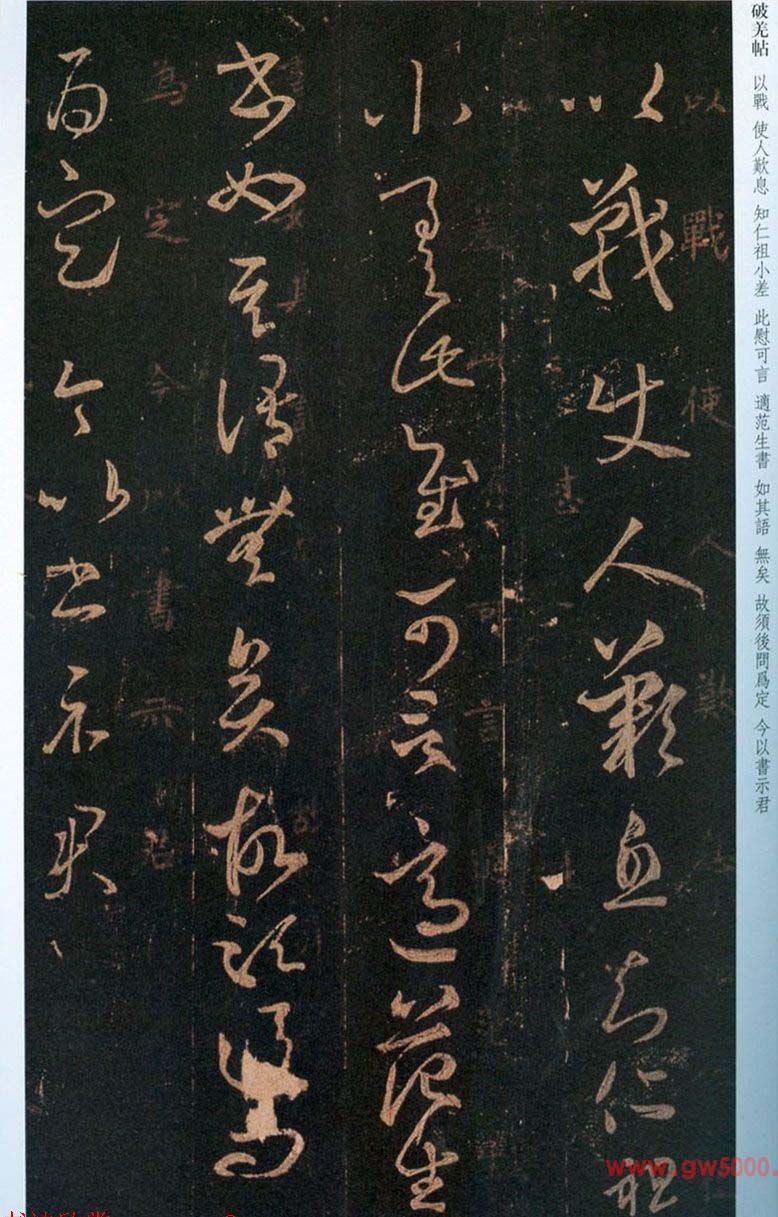 破羌帖 以戰 使人歎息 知仁祖小差 此慰可言 適范生書 如其語 無矣 故須後問爲定 今以書示君
以戰使人歎息知仁祖
小差此慰可言適范生
書如其語無矣故須後問
為定今以書示君
www.gw5000.